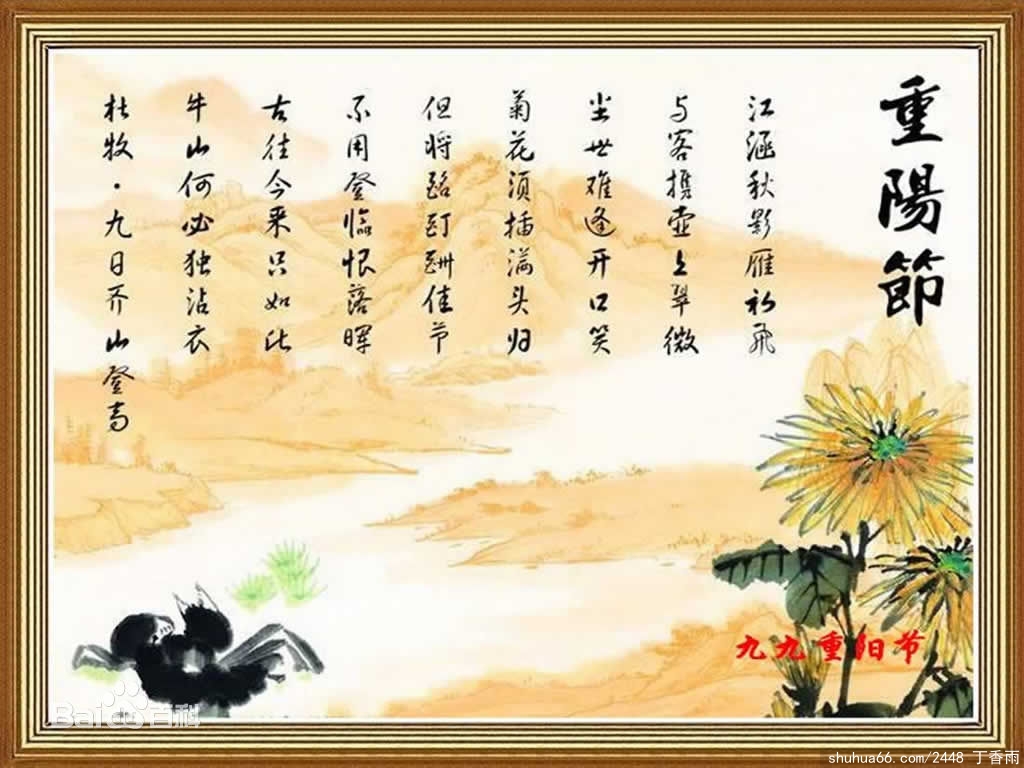 重陽節
江涵秋影雁初飛
与客携壶上翠微
尘世难逢开口笑
菊花须插满头归
但将酩酊酬佳节
不用登临恨落晖
古往今来只如此
牛山何必独沾衣
杜牧·九日齐山登高
九九重阳节
Baidu百科
shuhua66.com/2448 丁香雨